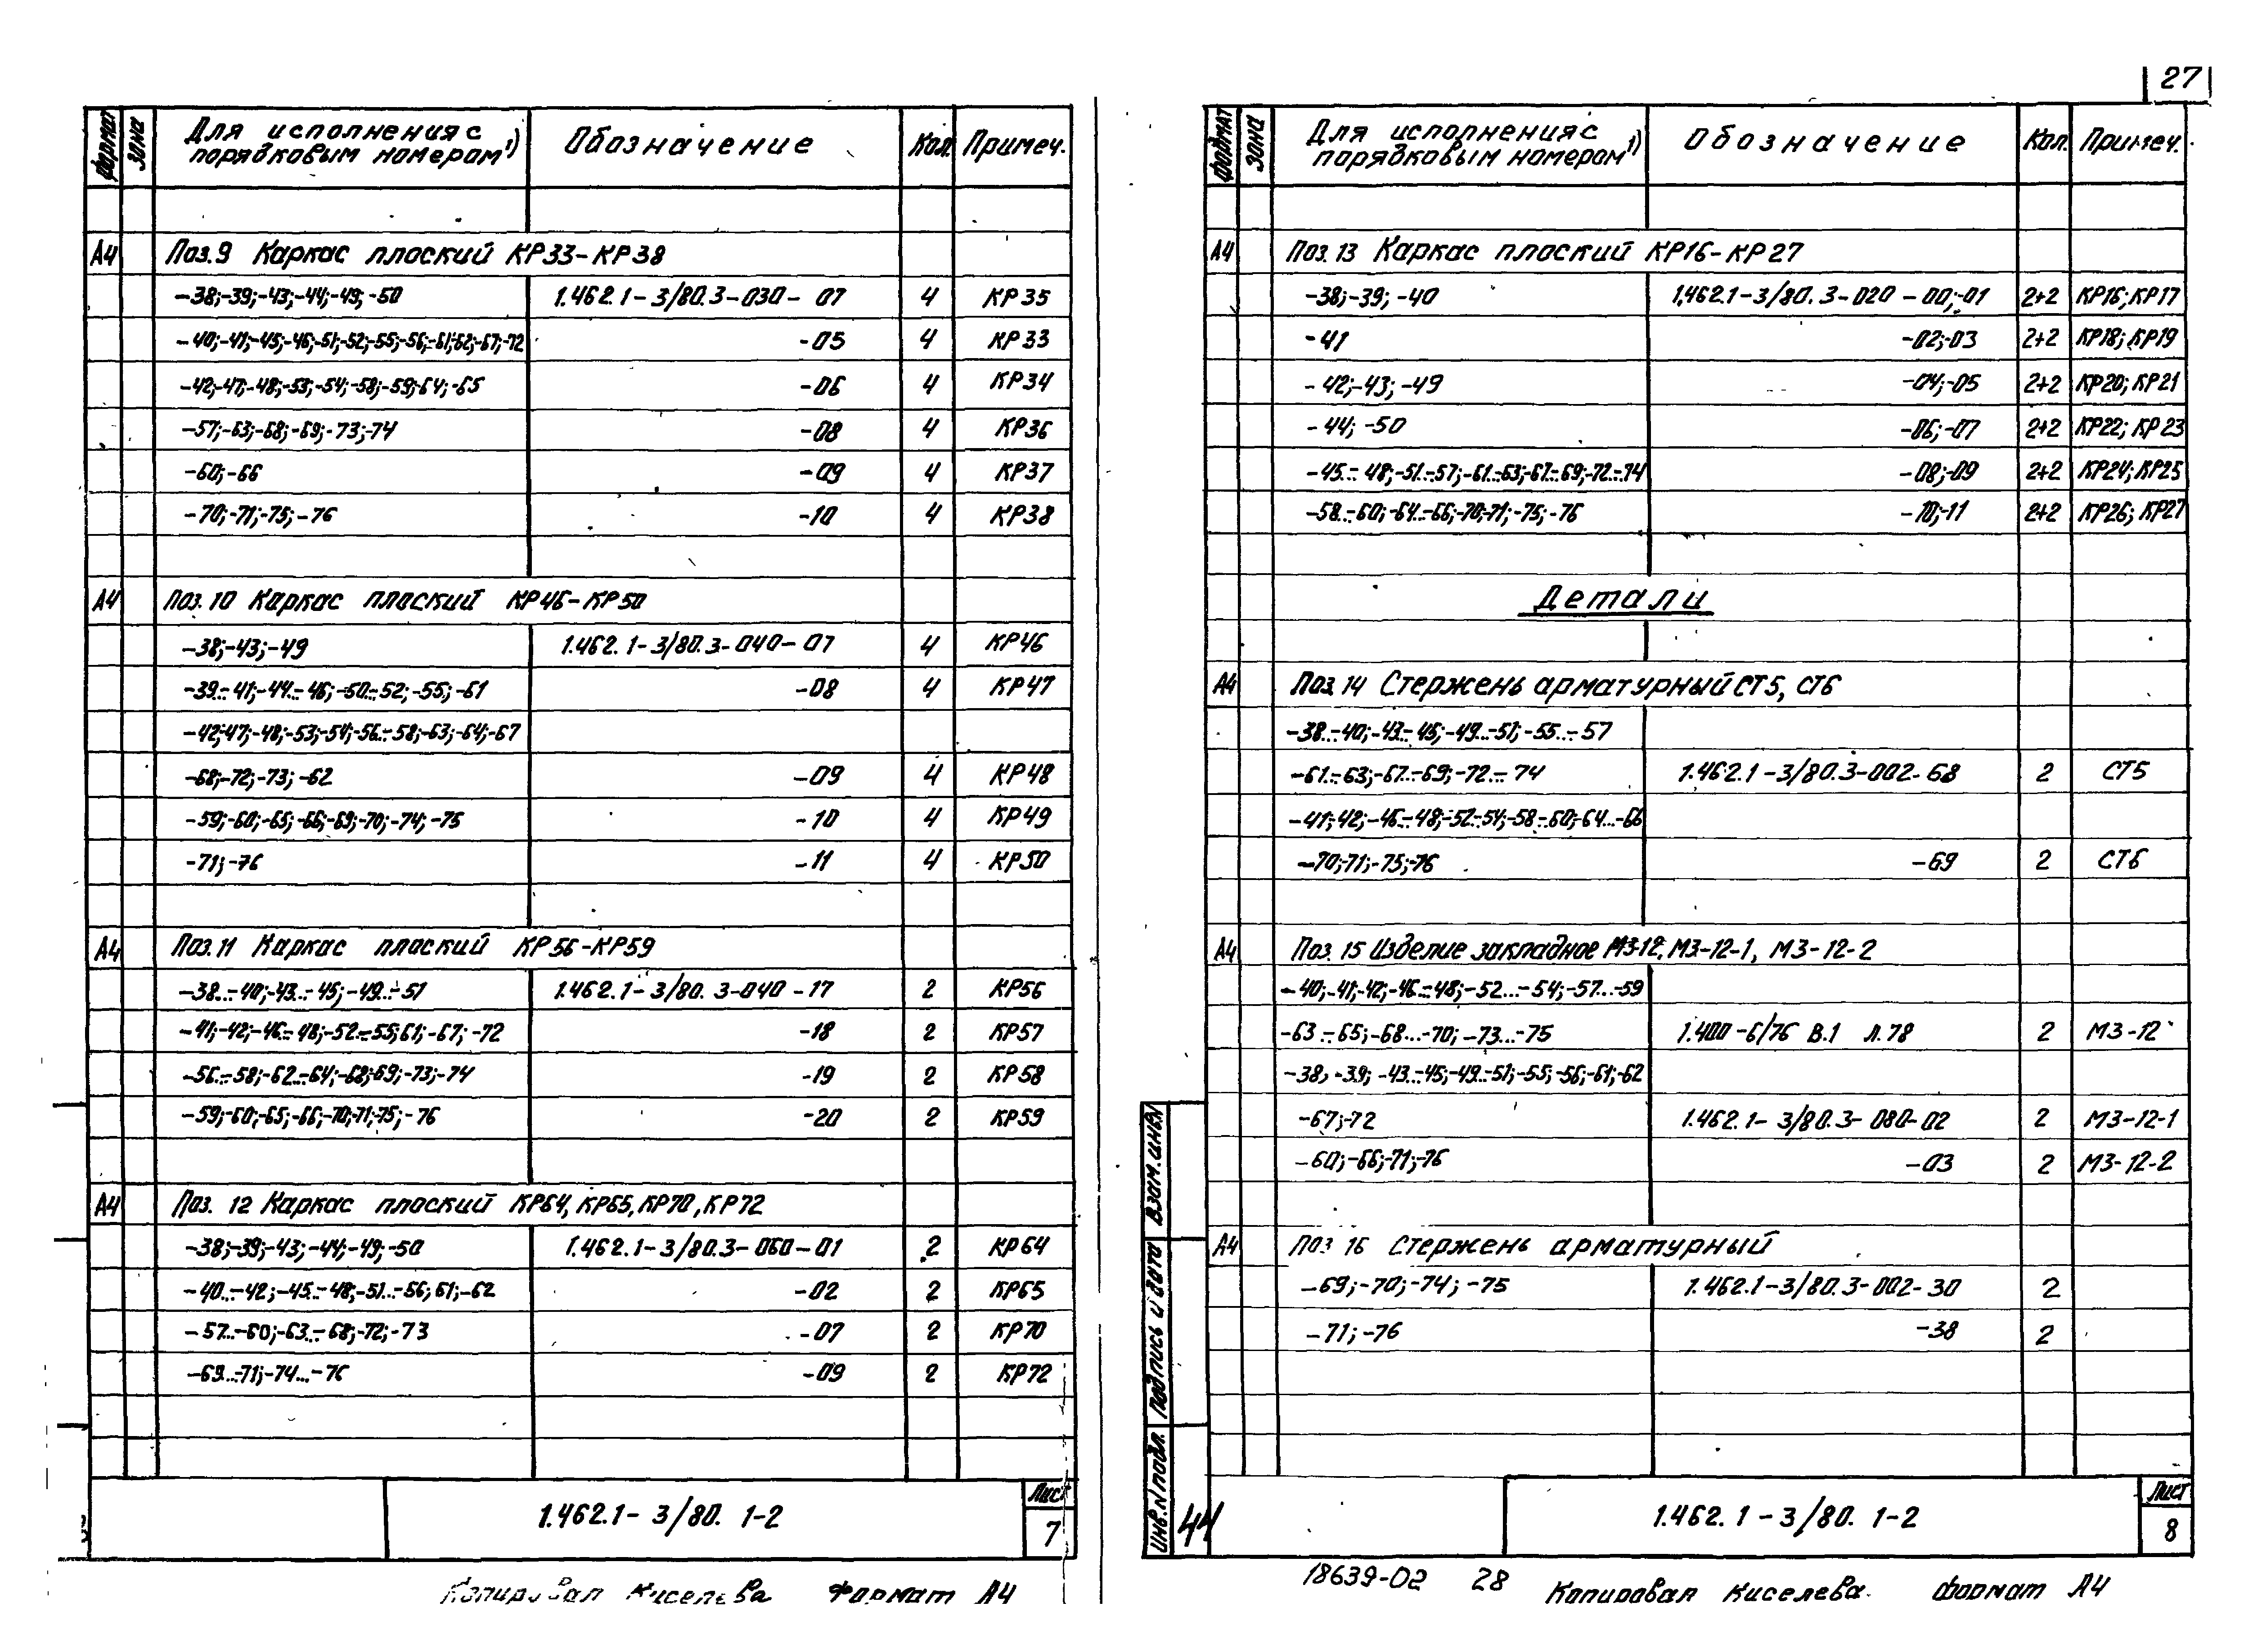 27
формат
зона
Для исполнения с порядковым номером¹⁾ Обозначение Кол. Примеч.
А4 Поз. 9 Каркас плоский КР33-КР38
-38;-39;-43;-44;-49;-50 1.462.1-3/80.3-030-07 4 КР35
-40;-41;-45;-46;-51;-52;-55;-56;-61;62;-67;-72 -05 4 КР33
-42;-47;-48;-53;-54;-58;-59;-64;-65 -06 4 КР34
-57;-63;-68;-69;-73;-74 -08 4 КР36
-60;-66 -09 4 КР37
-70;-71;-75;-76 -10 4 КР38
А4 Поз. 10 Каркас плоский КР46-КР50
-38;-43;-49 1.462.1-3/80.3-040-07 4 КР46
-39...-41;-44...-46;-50...-52;-55;-61 -08 4 КР47
-42;-47;-48;-53;-54;-56...-58;-63;-64;-67
-68;-72;-73;-62 -09 4 КР48
-59;-60;-65;-66;-69;-70;-74;-75 -10 4 КР49
-71;-76 -11 4 КР50
А4 Поз. 11 Каркас плоский КР56-КР59
-38...-40;-43...-45;-49...-51 1.462.1-3/80.3-040-17 2 КР56
-41;-42;-46...-48;-52...-55;61;-67;-72 -18 2 КР57
-56...-58;-62...-64;-68;-69;-73;-74 -19 2 КР58
-59;-60;-65;-66;-70;-71;-75;-76 -20 2 КР59
А4 Поз. 12 Каркас плоский КР64, КР65, КР70, КР72
-38;-39;-43;-44;-49;-50 1.462.1-3/80.3-060-01 2 КР64
-40...-42;-45...-48;-51...-56;61;-62 -02 2 КР65
-57...-60;-63...-68;-72;-73 -07 2 КР70
-69...-71;-74...-76 -09 2 КР72
1.462.1-3/80. 1-2
Лист
7
Копировал Киселева Формат А4
формат
зона
Для исполнения с порядковым номером¹⁾ Обозначение Кол. Примеч.
А4 Поз. 13 Каркас плоский КР16-КР27
-38;-39;-40 1.462.1-3/80.3-020-00;-01 2+2 КР16; КР17
-41 -02;-03 2+2 КР18; КР19
-42;-43;-49 -04;-05 2+2 КР20; КР21
-44;-50 -06;-07 2+2 КР22; КР23
-45...-48;-51...-57;-61...-63;-67...-69;-72...-74 -08;-09 2+2 КР24; КР25
-58...-60;-64...-66;-70;-71;-75;-76 -10;-11 2+2 КР26; КР27
Детали
А4 Поз. 14 Стержень арматурный СТ5, СТ6
-38...-40;-43...-45;-49...-51;-55...-57
-61...-63;-67...-69;-72...-74 1.462.1-3/80.3-002-68 2 СТ5
-41;-42;-46...-48;-52...-54;-58...-60;-64...-66
-70;-71;-75;-76 -69 2 СТ6
А4 Поз. 15 Изделие закладное МЗ-12, МЗ-12-1, МЗ-12-2
-40;-41;-42;-46...-48;-52...-54;-57...-59
-63...-65;-68...-70;-73...-75 1.400-6/76 В.1 Л.78 2 МЗ-12
-38;-39;-43...-45;-49...-51;-55;-56;-61;-62
-67;-72 1.462.1-3/80.3-080-02 2 МЗ-12-1
-60;-66;-71;-76 -03 2 МЗ-12-2
А4 Поз. 16 Стержень арматурный
-69;-70;-74;-75 1.462.1-3/80.3-002-30 2
-71;-76 -38 2
Взам. инв. N
Подпись и дата
Инв. N подл.
44
1.462.1-3/80. 1-2
Лист
8
18639-02 28 Копировал Киселева формат А4